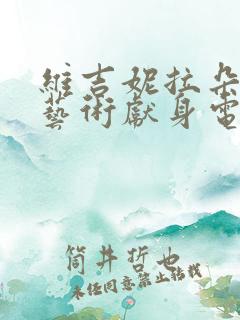 維吉妮拉朵
藝術獻身電
筒井哲也
未經同意禁止轉載